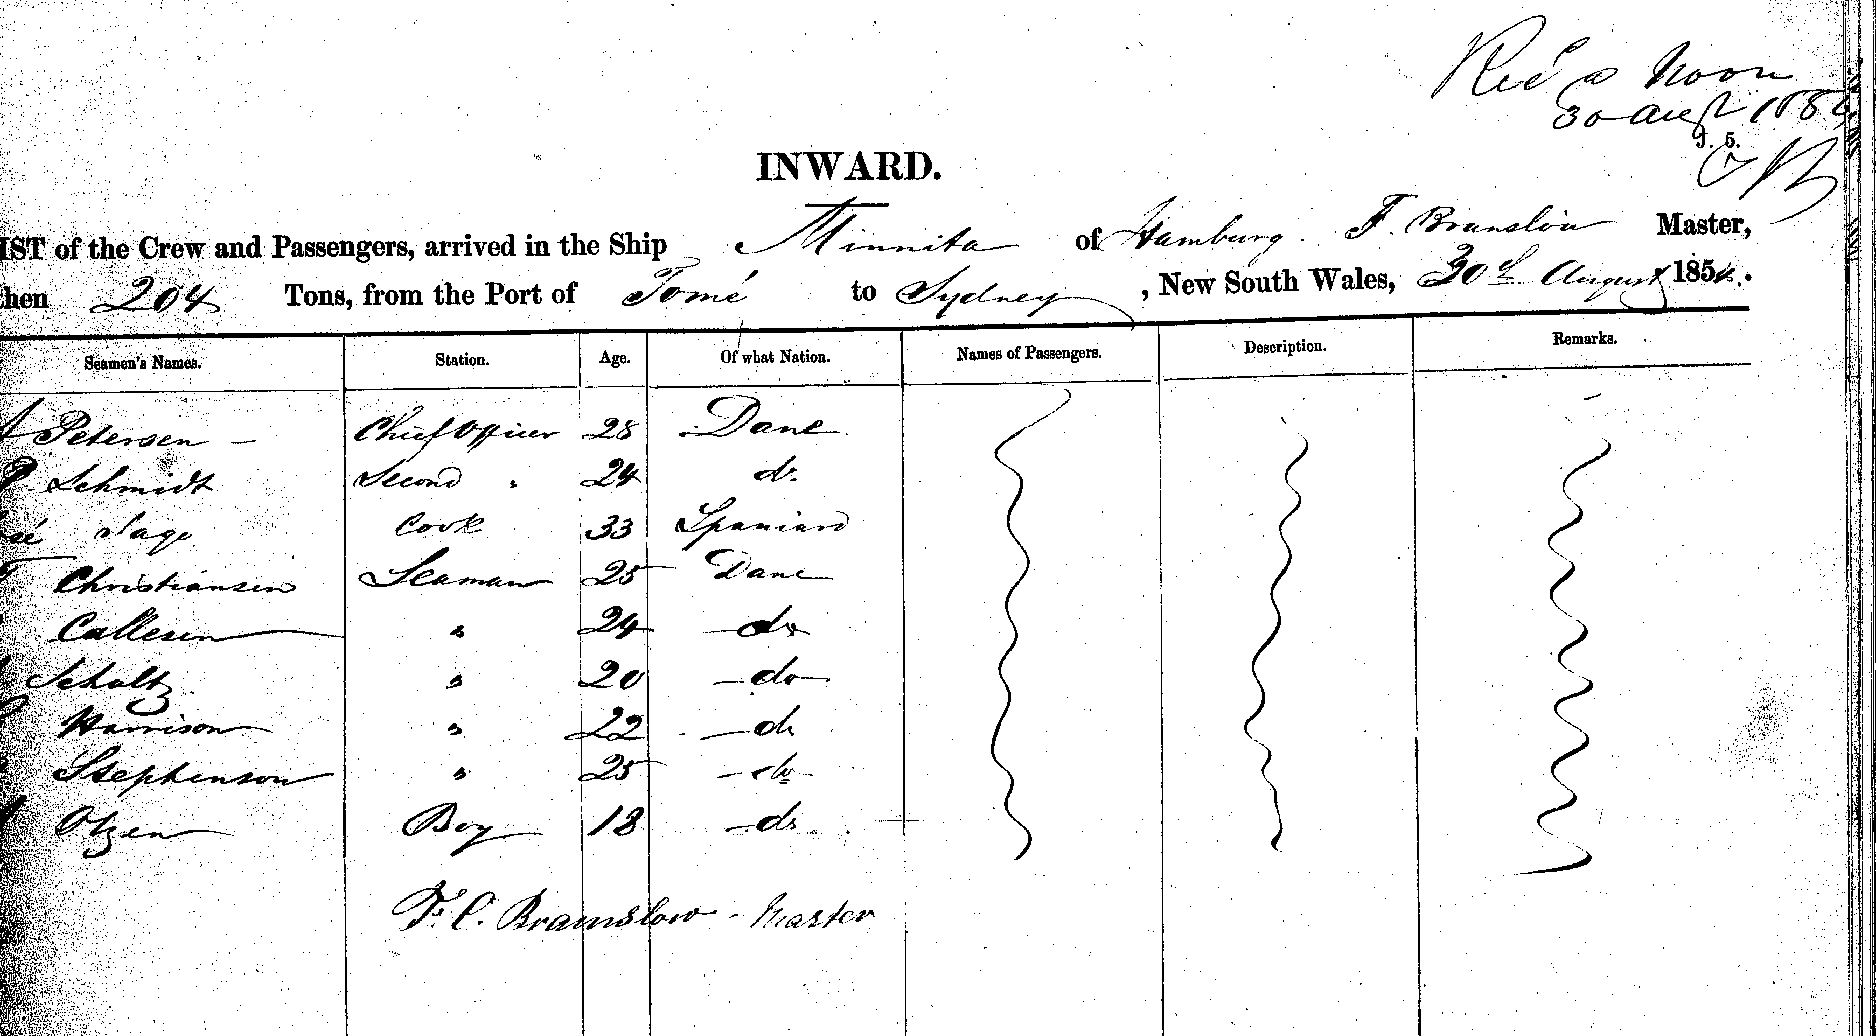 Rec'd @ Noon
30 Augt 185
J. 5.
INWARD.
IST of the Crew and Passengers, arrived in the Ship Minnita of Hamburg. F. Branslow Master,
then 204 Tons, from the Port of Tomé to Sydney, New South Wales, 30th August 1854.
Seamen's Names. Station. Age. Of what Nation. Names of Passengers. Description. Remarks.
Petersen – Chief Officer 28 Dane
P. Schmidt Second " 24 do.
sé Sage Cook 33 Spaniard
Christiansen Seaman 25 Dane
Callesen " 24 do
Schultz " 20 do
Harrison " 22 do
Stephenson " 25 do
Otzen Boy 18 do
F. C. Bramslow - Master